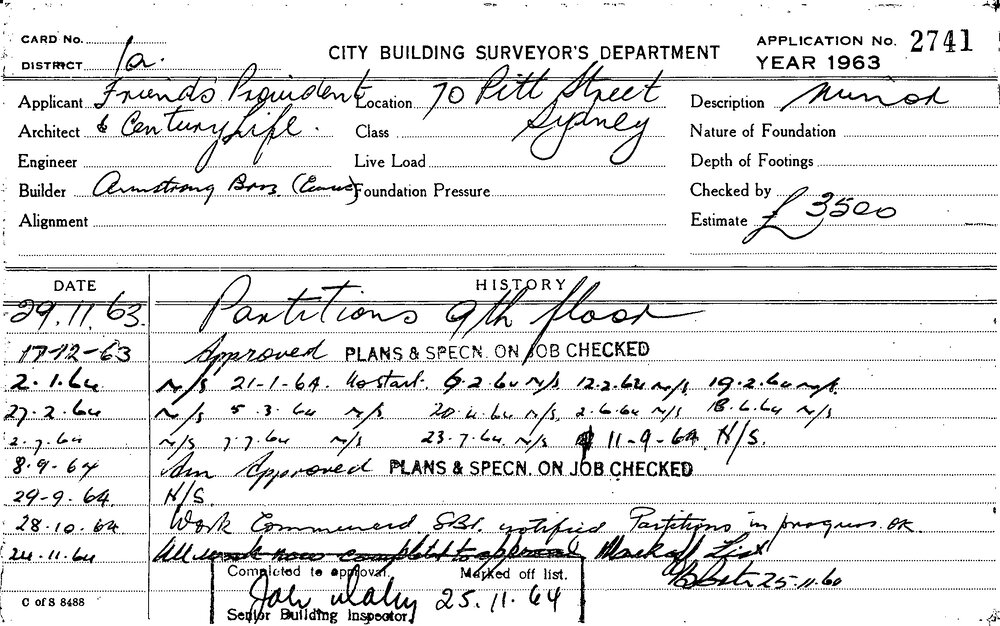 CARD No.
DISTRICT 1a.
CITY BUILDING SURVEYOR'S DEPARTMENT
APPLICATION No. 2741
YEAR 1963
Applicant Friends Provident Location 70 Pitt Street Description Minor
Architect & Century Life. Class Sydney Nature of Foundation
Engineer Live Load Depth of Footings
Builder Armstrong Bros Foundation Pressure Checked by
Alignment Estimate £3500
DATE HISTORY
29.11.63. Partitions 9th floor
17-12-63 Approved PLANS & SPECN. ON JOB CHECKED
2.1.64 N/S 21-1-64. No start. 6.2.64 N/S 12.2.64 N/S. 19.2.64 N/S.
27.2.64 N/S 5.3.64 N/S. 20.4.64 N/S. 2.6.64 N/S 18.6.64 N/S
2.7.64 N/S 7.7.64 N/S 23.7.64 N/S 11-9-64 N/S.
8.9-64 Am Approved PLANS & SPECN. ON JOB CHECKED
29-9.64. N/S.
28.10.64 Work Commenced notified Partitions in progress. OK
24.11.64 All work now completed to approval Mark off List
25.11.60
Completed to approval. Marked off list.
25.11.64
Senior Building Inspector.
C of S 8488